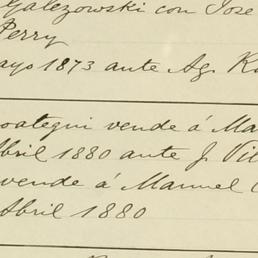 Galezowski con Jose
Perry
ayo 1873 ante Ag.
oategui vende á Ma
Abril 1880 ante J. Vil
vende á Manuel
Abril 1880